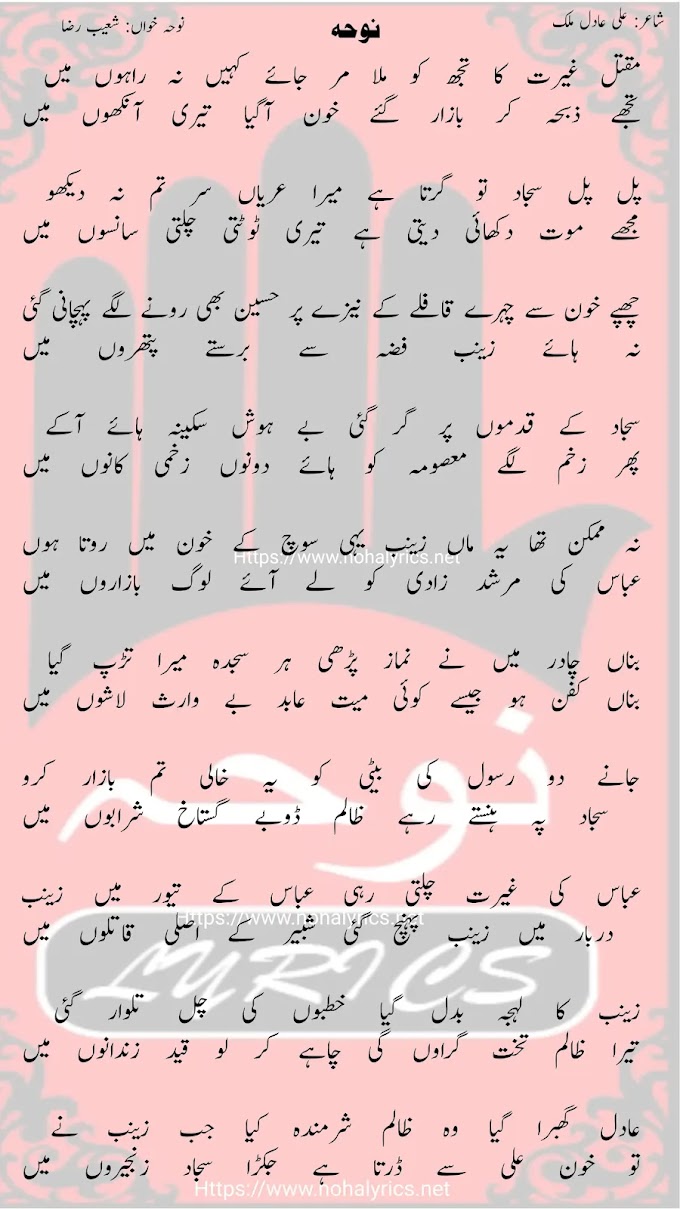 شاعر: علی عادل ملک
نوحہ
نوحہ خواں: شعیب رضا
مقتل غیرت کا تجھ کو ملا مر جائے کہیں نہ راہوں میں
تجھے ذبحہ کر بازار گئے خون آگیا تیری آنکھوں میں
پل پل سجاد تو گرتا ہے میرا عریاں سر تم نہ دیکھو
مجھے موت دکھائی دیتی ہے تیری ٹوٹتی چلتی سانسوں میں
چھپے خون سے چہرے قافلے کے نیزے پر حسین بھی رونے لگے پہچانی گئی
نہ ہائے زینب فضہ سے برستے پتھروں میں
سجاد کے قدموں پر گر گئی بے ہوش سکینہ ہائے آکے
پھر زخم لگے معصومہ کو ہائے دونوں زخمی کانوں میں
نہ ممکن تھا یہ ماں زینب یہی سوچ کے خون میں روتا ہوں
Https://www.nohalyrics.net
عباس کی مرشد زادی کو لے آئے لوگ بازاروں میں
بناں چادر میں نے نماز پڑھی ہر سجدہ میرا تڑپ گیا
بناں کفن ہو جیسے کوئی میت عابد بے وارث لاشوں میں
جانے دو رسول کی بیٹی کو یہ خالی تم بازار کرو
سجاد پہ ہنستے رہے ظالم ڈوبے گستاخ شرابوں میں
نوحہ
عباس کی غیرت چلتی رہی عباس کے تیور میں زینب
Https://www.nohalyrics.net
دربار میں زینب پہنچ گئی شبیر کے اصلی قاتلوں میں
LYRICS
زینب کا لہجہ بدل گیا خطبوں کی چل تلوار گئی
تیرا ظالم تخت گراوں گی چاہے کر لو قید زندانوں میں
عادل گھبرا گیا وہ ظالم شرمندہ کیا جب زینب نے
تو خون علی سے ڈرتا ہے جکڑا سجاد زنجیروں میں
Https://www.nohalyrics.net